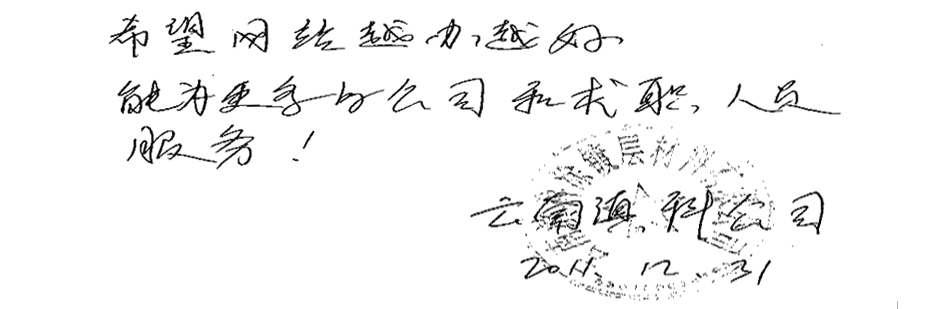 希望网站越办越好
能为更多的公司和求职人员
服务！
云南滇科公司
2011.12.31